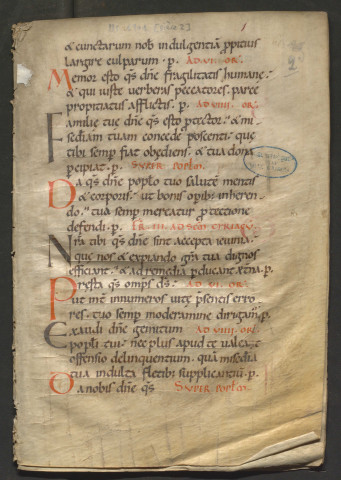 & cunctarum nob indulgentiā ppitius
largire culparum . p. AD VI OR.
Memor esto qs dne fragilitatis humane
& qui iuste verberas peccatores. parce
propitiatus afflictis. p. AD VIIII. OR.
Familie tue dne qs esto ptector. & mi
sediam tuam concede poscenti. que
tibi semp fiat obediens. & tua dona
pcipiat. p. SUPER POPLM.
Da qs dne poplo tuo salutē mentis
& corporis. ut bonis opib; inheren
do. tua semp mereatur ptectione
defendi. p. FR. III. AD SCM CYRIACU.
Nra tibi qs dne sint accepta ieiunia.
que nos & expiando grā tua dignos
efficiant. & ad remedia pducant ęterna. p.
Presta qs omps ds. AD VI. OR.
ut inť innumeros vitę psentis erro
res. tuo semp moderamine dirigam. p.
Exaudi dne gemitum AD VIIII OR.
popli tui. nec plus apud te valeat
offensio delinquentium. quā misedia
tua indulta fletib; supplicantiū. p.
a nobis dne qs SUPER POPLM.